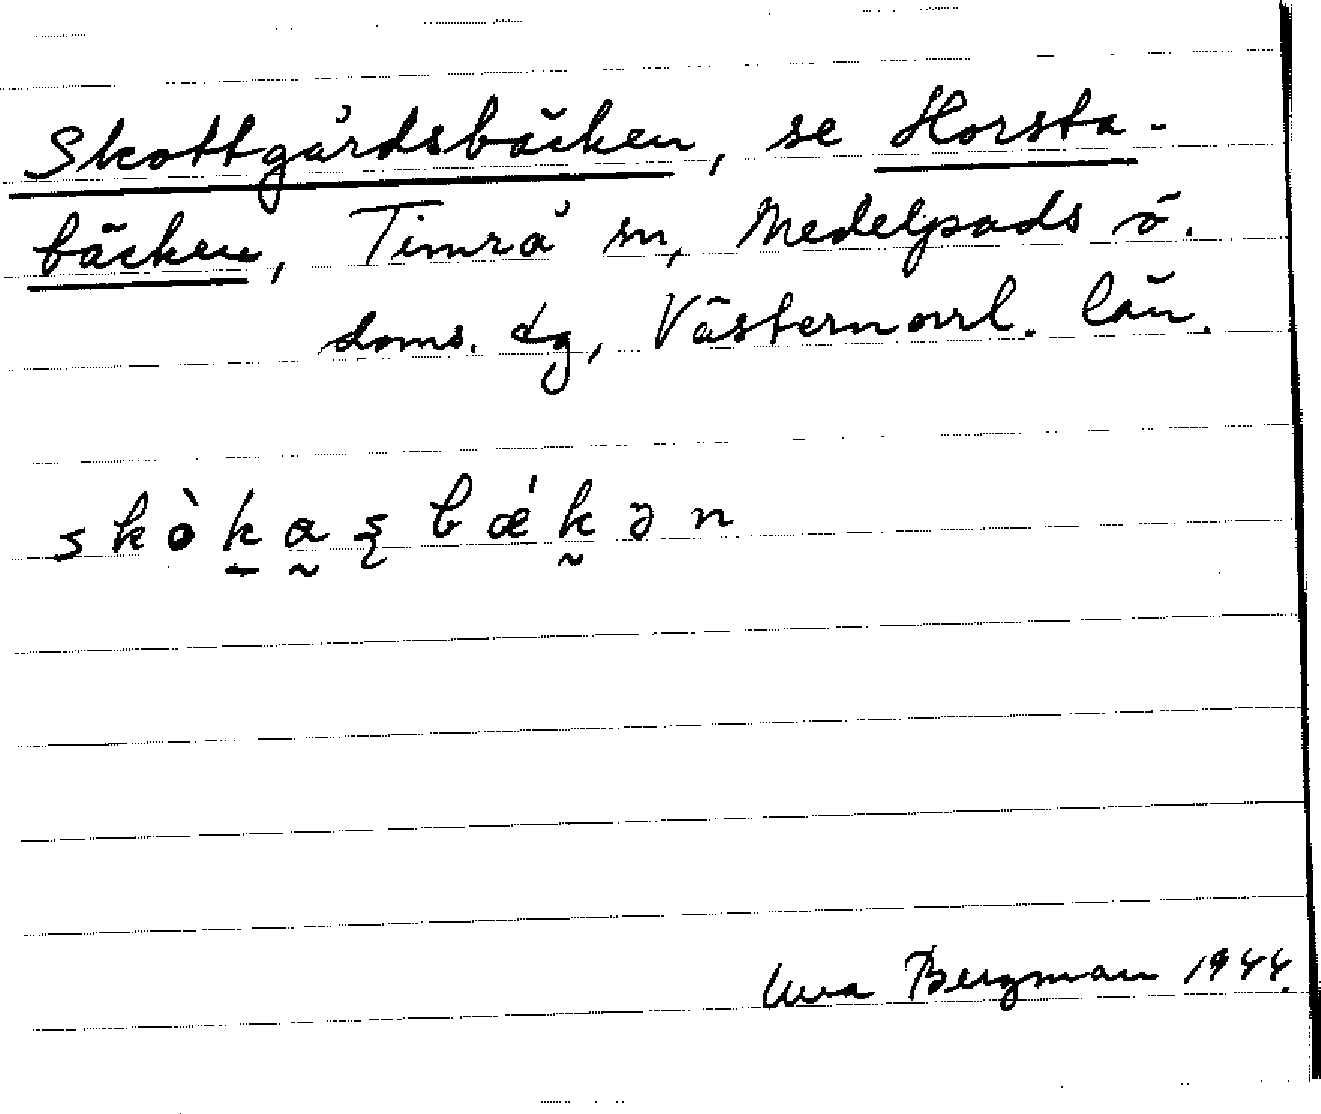 Skottgårdsbäcken, se Horsta-
bäcken, Timrå sn, Medelpads ö.
doms. dg, Västernorrl. län.
skòk̠a̰ʂbǽk̰ən
Bergman 1944.